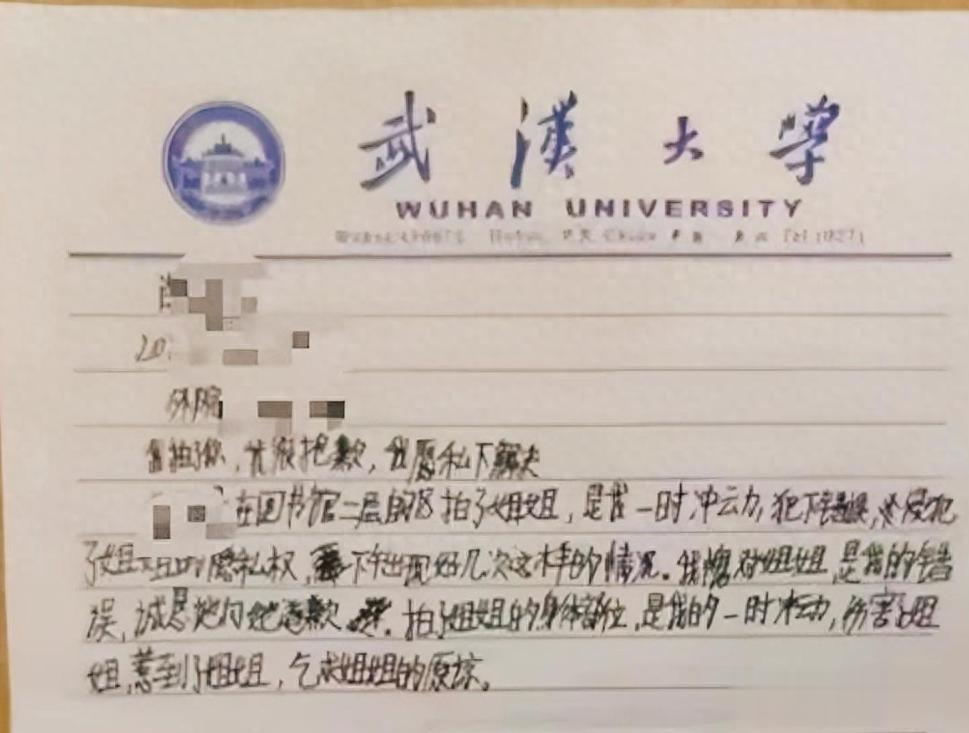 武漢大學
WUHAN UNIVERSITY
外院
偷拍了你,首很抱歉,我愿私下解决
在图书馆二层自习拍了姐姐,是我一时冲动,犯下错误,侵犯
了姐姐的隐私权,下午出现好几次这样的情况。我愧对姐姐,是我的错
误,诚恳地向她道歉。拍了姐姐的身体部位,是我的一时冲动,伤害了姐
姐,惹到了姐姐,乞求姐姐的原谅。